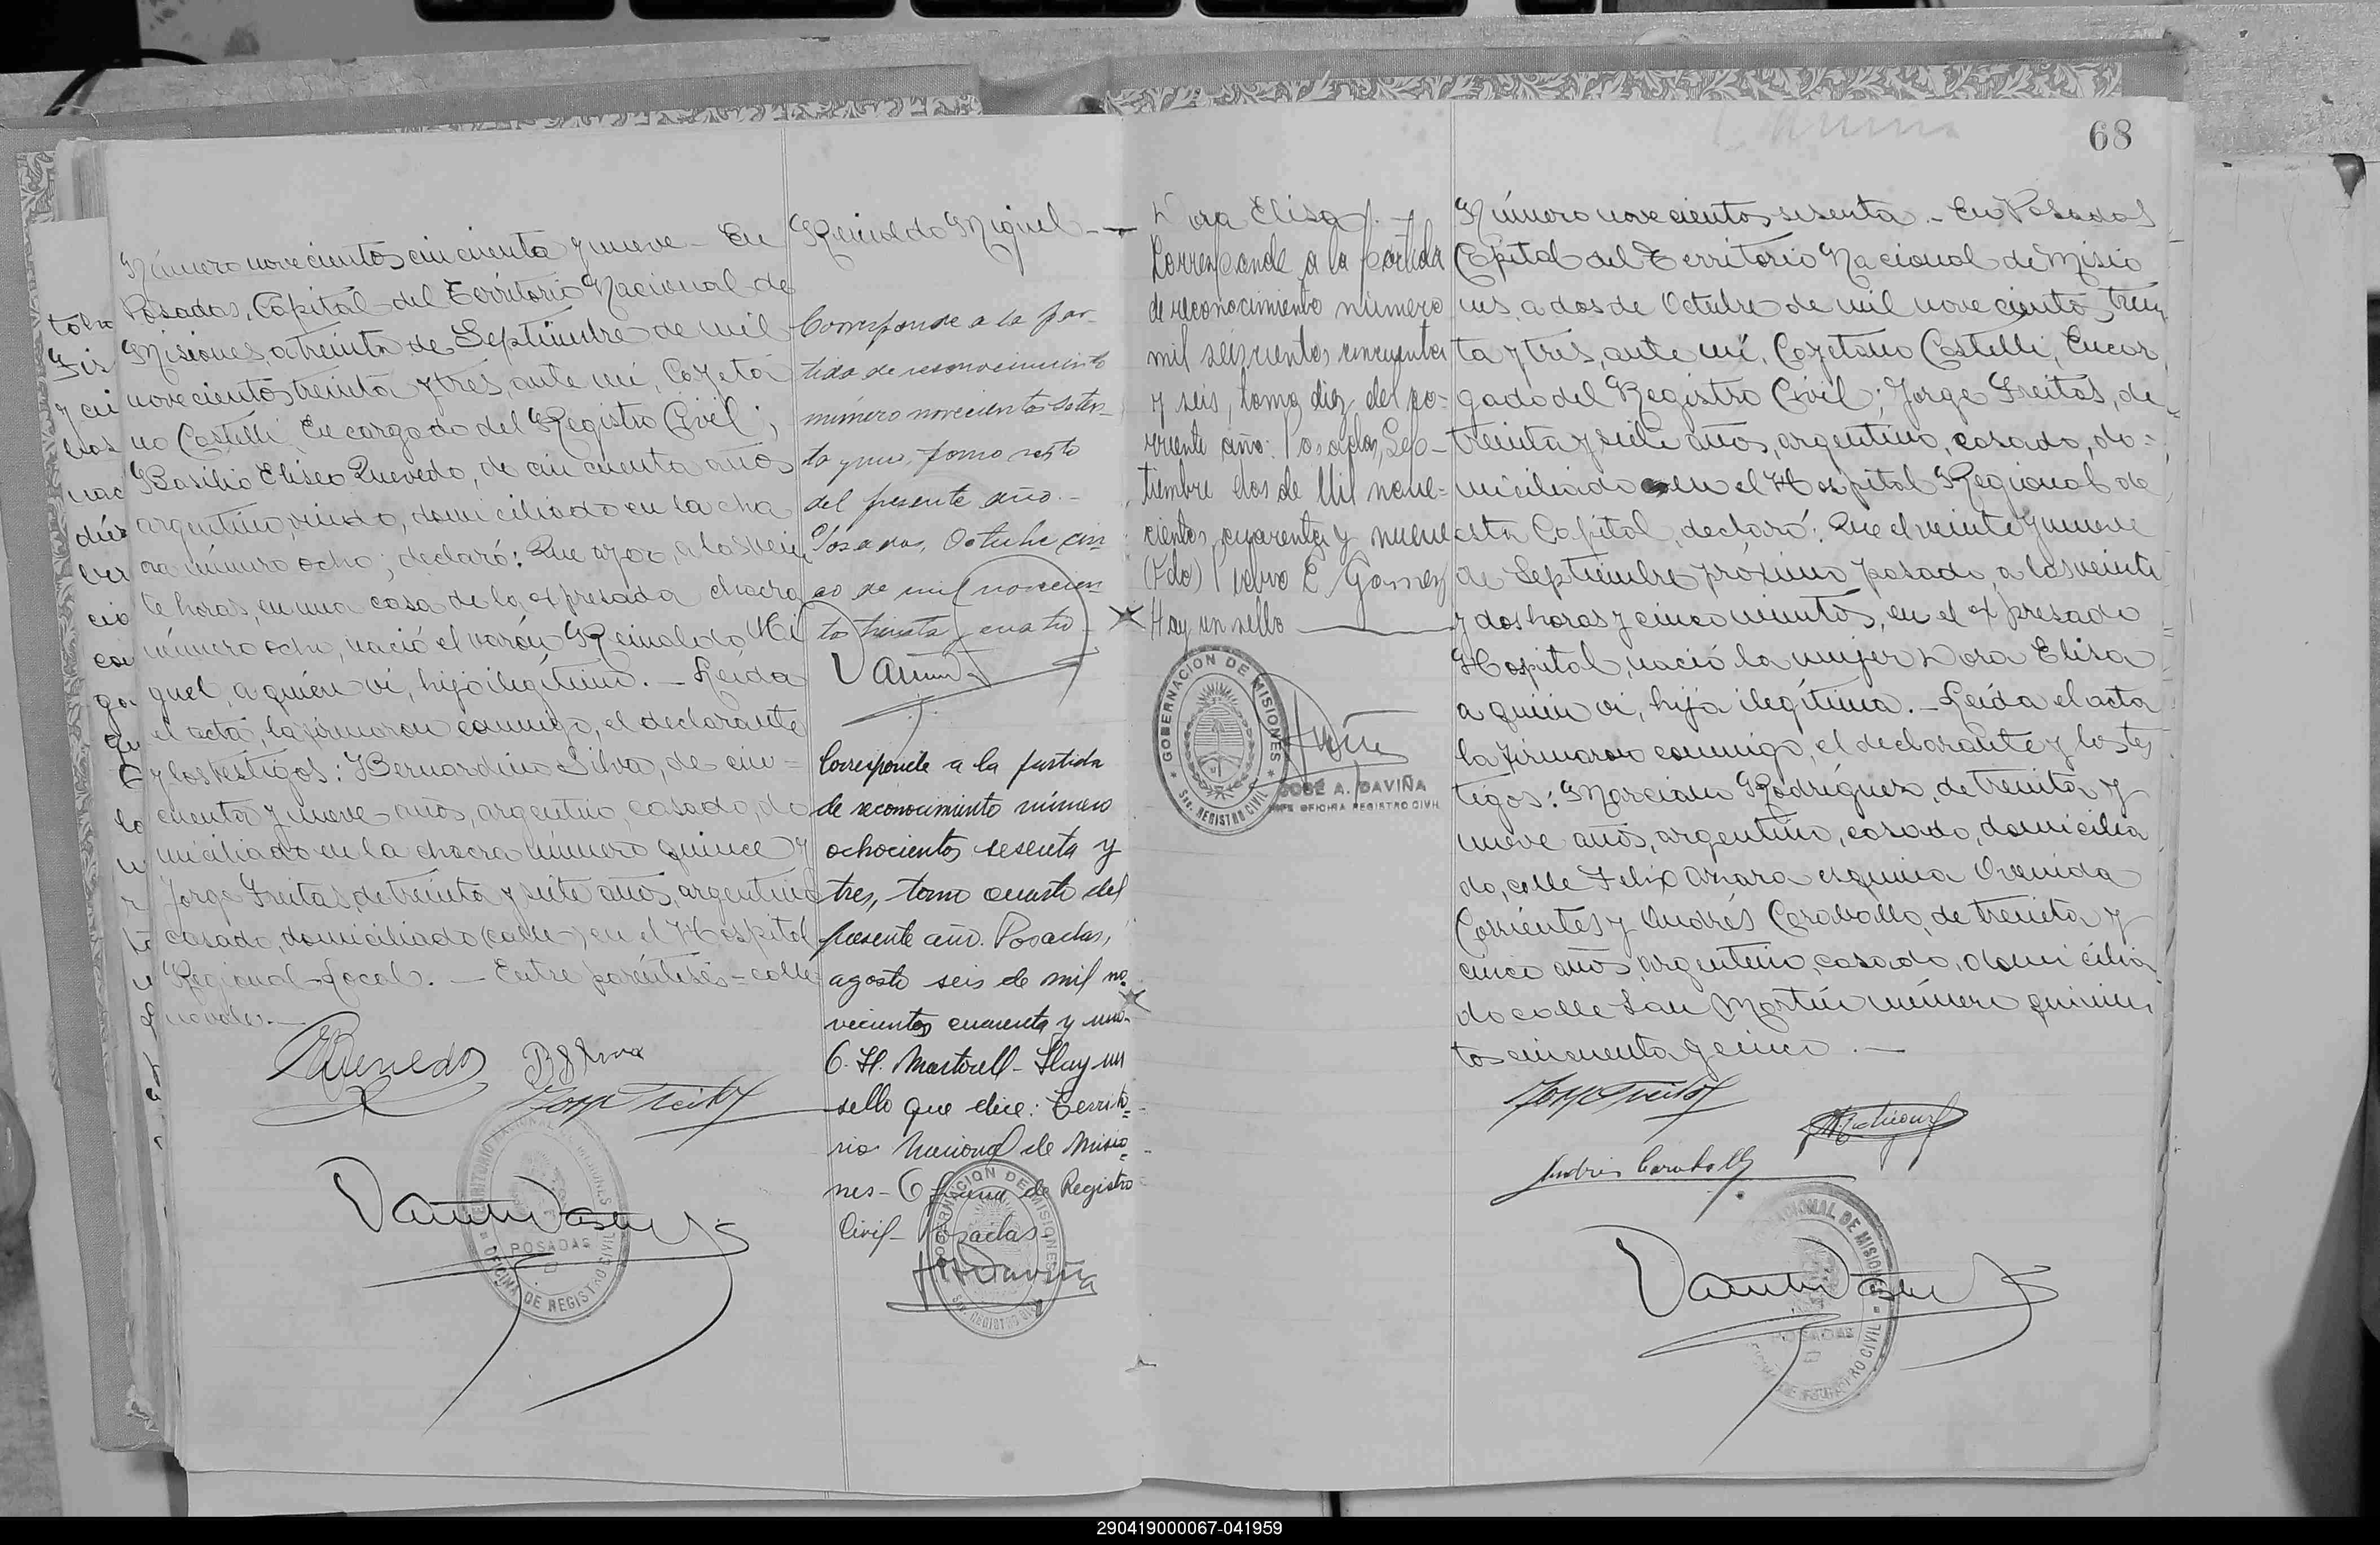 Número novecientos cincuenta y nueve - En
Posadas, Capital del Territorio Nacional de
Misiones, a treinta de Septiembre de mil
novecientos treinta y tres, ante mí, Cayeta
no Castelli, Encargado del Registro Civil;
Basilio Eliseo Quevedo, de cincuenta años
argentino, viudo, domiciliado en la cha
cra número ocho; declaró: Que ayer, a las vein
te horas, en una casa de la expresada chacra
número ocho, nació el varón Reinaldo Mi
guel, a quien vi, hijo ilegítimo. - Leída
el acta, la firmaron conmigo, el declarante
y los testigos: Bernardino Silva, de cin-
cuenta y nueve años, argentino, casado, do
miciliado en la chacra número quince y
Jorge Freitas, de treinta y siete años, argentino
casado, domiciliado (calle) en el Hospital
Regional Local. - Entre paréntesis = calle =
no vale. -
Reinaldo Miguel -
Corresponde a la par-
tida de reconocimiento
número novecientos seten-
ta y uno, tomo sexto
del presente año. -
Posadas, Octubre cin
co de mil novecien
tos treinta y cuatro -
Corresponde a la partida
de reconocimiento número
ochocientos sesenta y
tres, tomo cuarto del
presente año. Posadas,
agosto seis de mil no=
vecientos cuarenta y uno-
C. H. Martorell - Hay un
sello que dice: Territo=
rio Nacional de Misio=
nes - Oficina de Registro
Civil - Posadas -
GOBERNACION DE MISIONES
Sec. REGISTRO CIVIL
TERRITORIO NACIONAL DE MISIONES
POSADAS
OFICINA DE REGISTRO CIVIL
68
Dora Elisa. -
Corresponde a la partida
de reconocimiento número
mil seiscientos cincuenta
y seis, tomo diez del co-
rriente año. Posadas, Sep-
tiembre dos de Mil nove=
cientos cuarenta y nueve
(Fdo) E. Gomez
Hay un sello
GOBERNACION DE MISIONES
Sec. REGISTRO CIVIL
JOSÉ A. DAVIÑA
JEFE OFICINA REGISTRO CIVIL
Número novecientos sesenta. - En Posadas
Capital del Territorio Nacional de Misio
nes, a dos de Octubre de mil novecientos trein
ta y tres, ante mí, Cayetano Castelli, Encar
gado del Registro Civil; Jorge Freitas, de
treinta y siete años, argentino, casado, do=
miciliado en el Hospital Regional de
esta Capital, declaró: Que el veinte y nueve
de Septiembre próximo pasado, a las veinte
y dos horas y cinco minutos, en el expresado
Hospital, nació la mujer Dora Elisa
a quien vi, hija ilegítima. - Leída el acta
la firmaron conmigo, el declarante y los tes
tigos: Marciano Rodríguez, de treinta y
nueve años, argentino, casado, domicilia
do, calle Felix Azara esquina Avenida
Corrientes y Andrés Caraballo, de treinta y
cinco años, argentino, casado, domicilia
do calle San Martín número quinien
tos cincuenta y cinco. -
Jorge Freitas
Andrés Caraballo
NACIONAL DE MISIONES
POSADAS
REGISTRO CIVIL
290419000067-041959